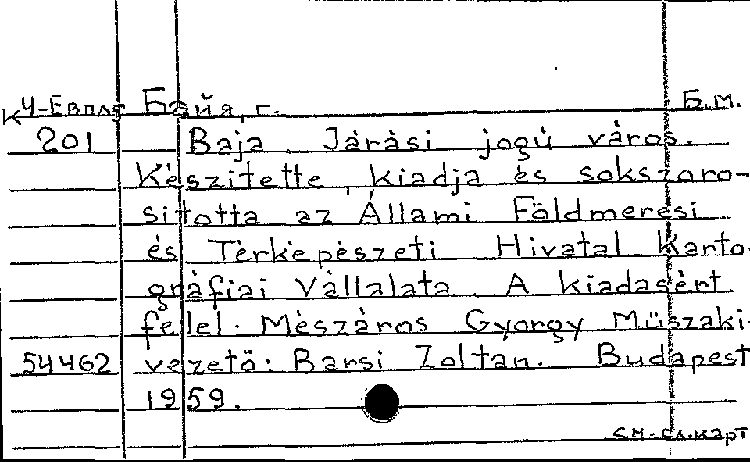 К 4-Евпл5 Байя, г. Б.м.
201 Baja. Járási jogú város.
Készitette, kiadja és sokszoro-
sitotta az Állami Földmerési
és Térképészeti Hivatal Karto-
gráfiai Vállalata. A kiadasért
felel. Mészáros Gyorgy Müszaki-
54462 vezetö: Barsi Zoltan. Budapest
1959.
см.сл.карт